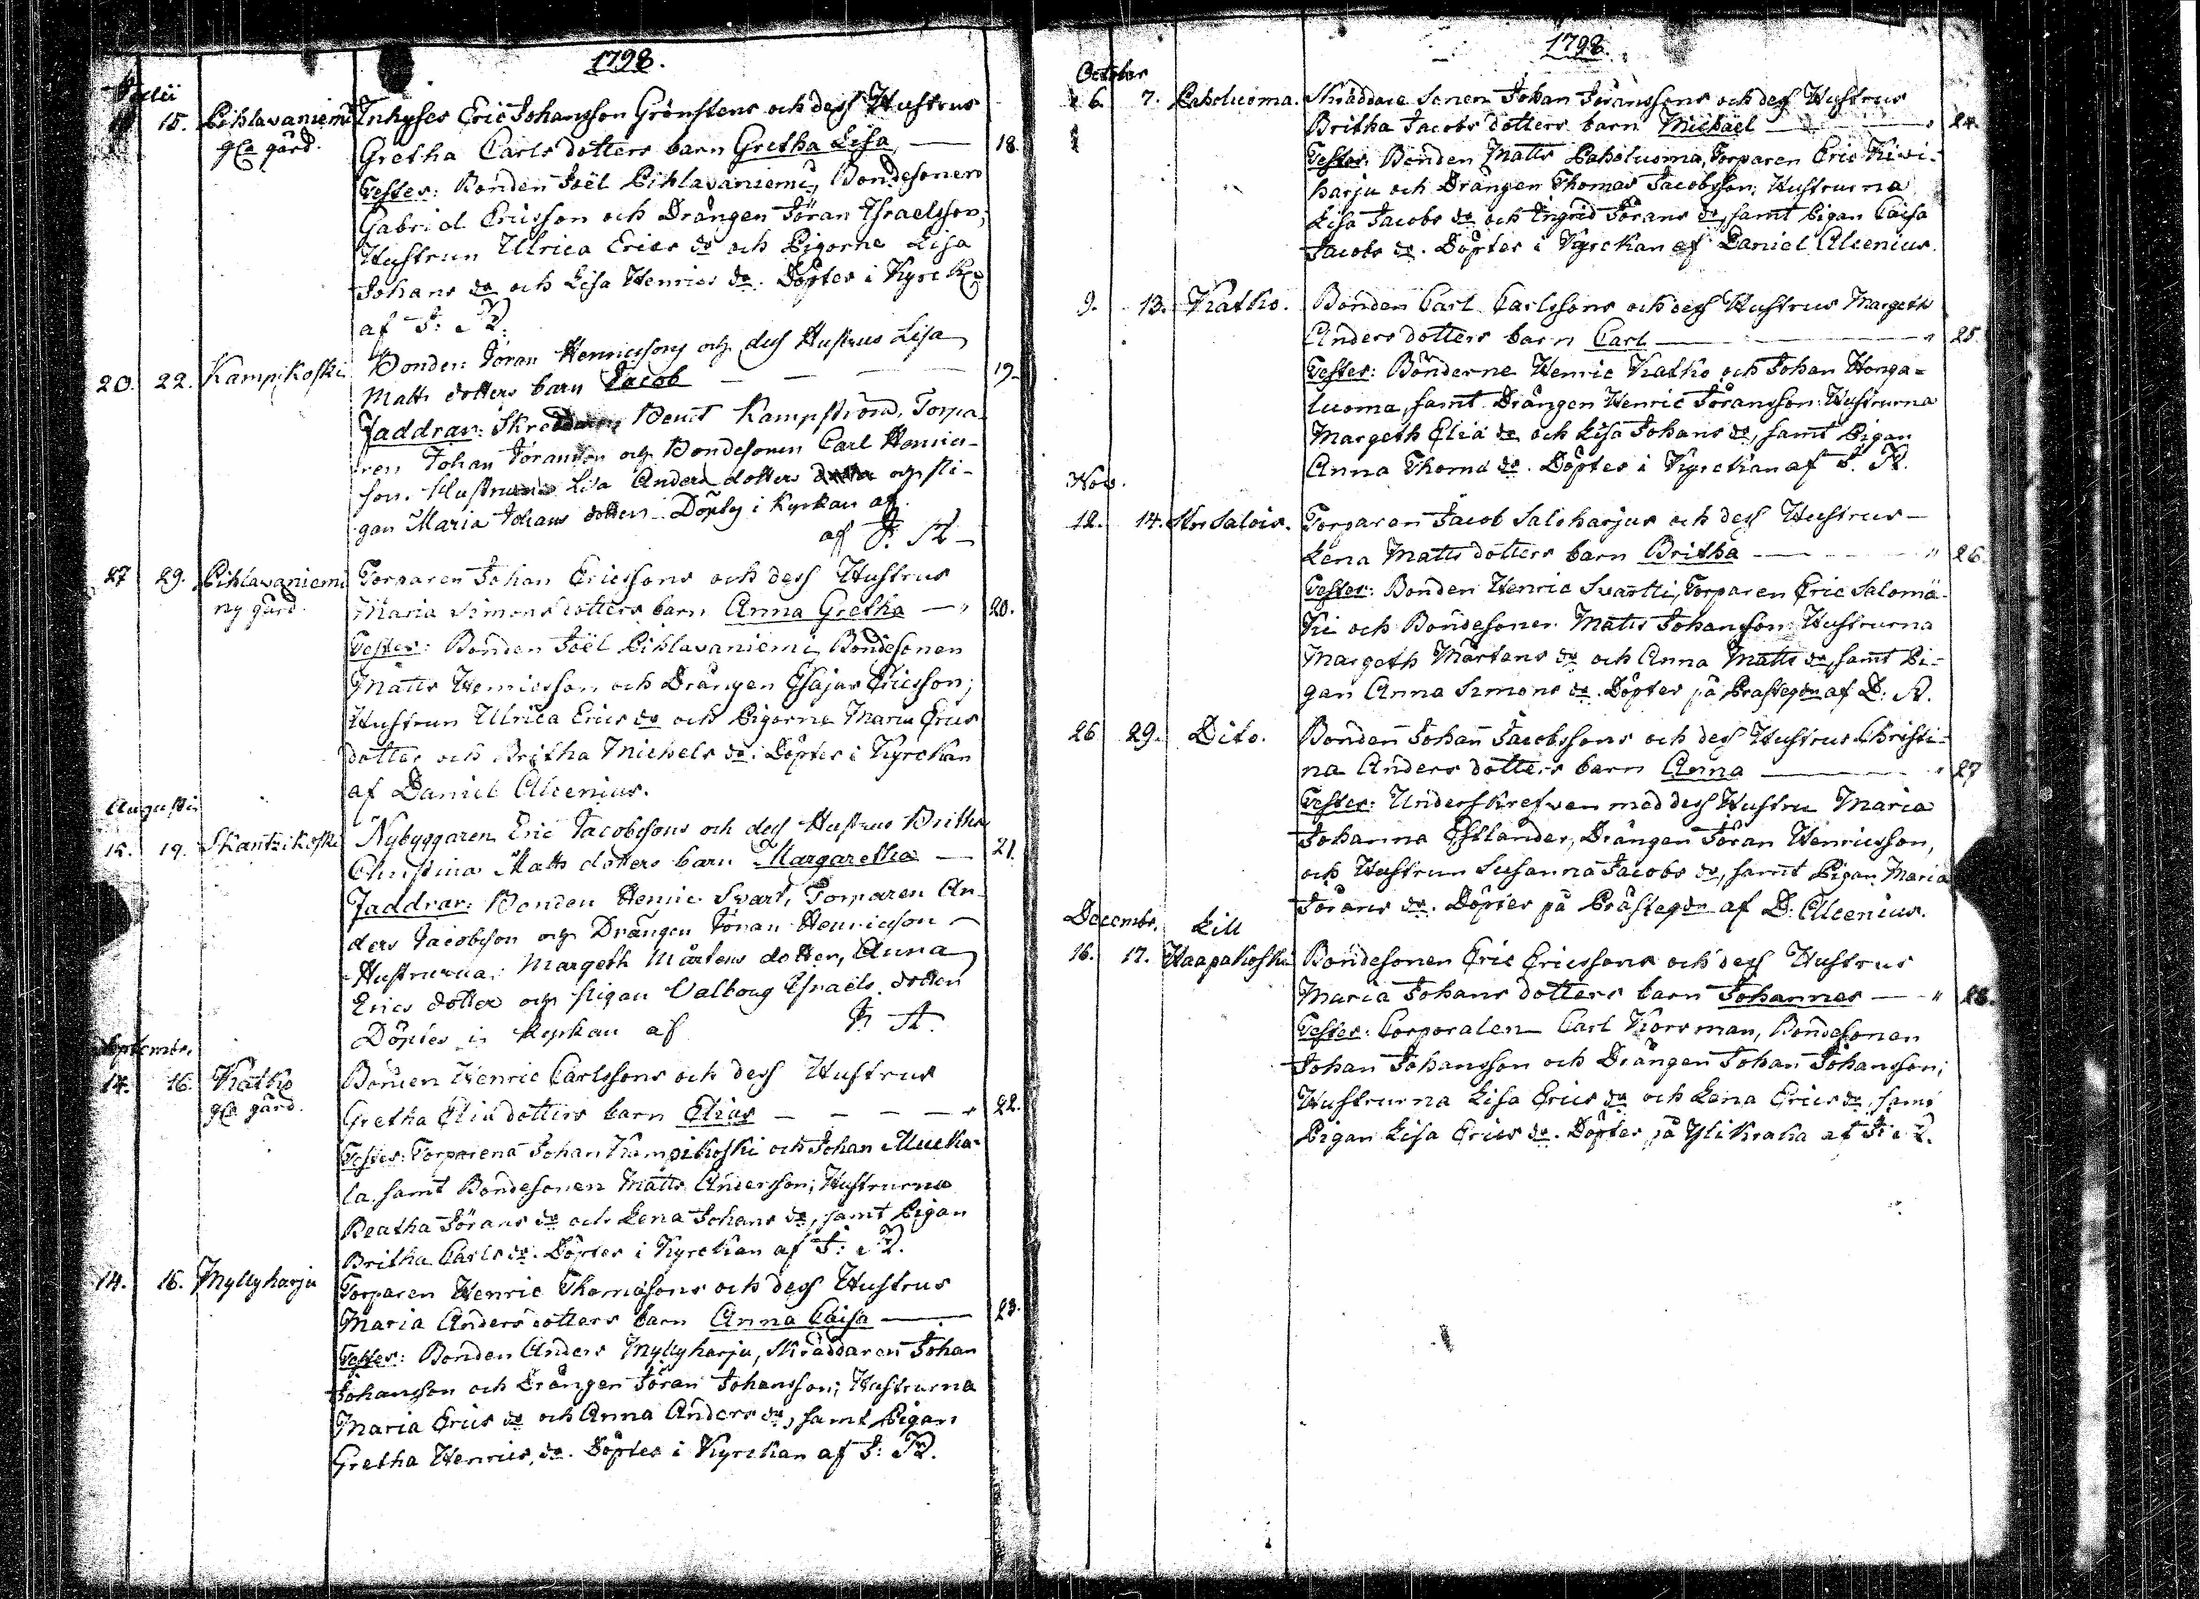 1798.
Julii
15. Pihlavaniemi Inhyses Eric Johansson Grönstens och dess Hustrus
gla gård. Gretha Carls dotters barn Gretha Lisa — 18.
Testes: Bonden Joël Pihlavaniemi, Bondesonen
Gabriel Ericsson och Drängen Jöran Israelsson;
Hustrun Ulrica Erics dr och Pigorne Lisa
Johans dr och Lisa Henrics dr. Döptes i Kyrck:
af J: R.
20. 22. Kampikoski Bonden Jöran Henricssons och dess Hustrus Lisa
Matts dotters barn Jacob — — — 19.
Faddrar: Skreddaren Bengt Kampström, Torpa-
ren Johan Jöransson och Bondesonen Carl Henrics-
son. Hustrurna Lisa Anders dotter och Pi-
gan Maria Johans dotter. Döptes i Kyrkan af
af J. R.
27 29. Pihlavaniemi Torparen Johan Ericssons och dess Hustrus
ny gård. Maria Simons dotters barn Anna Gretha — " 20.
Testes: Bonden Joël Pihlavaniemi, Bondesonen
Matts Henricsson och Drängen Esajas Ericsson;
Hustrun Ulrica Erics dr och Pigorne Maria Erics
dotter och Britha Michels dr. Döptes i Kyrckan
af Daniel Alcenius.
Augusti
15. 19. Skantzikoski Nybyggaren Eric Jacobssons och dess Hustrus Britha
Christina Matts dotters barn Margaretha — 21.
Faddrar: Bonden Henric Svart, Torparen An-
ders Jacobsson och Drängen Jöran Henricsson
Hustrurna: Margeth Mårtens dotter, Anna
Erics dotter och Pigan Valborg Israels dotter
Döptes i Kyrkan af
Septembr.
14. 16. Katko Bonden Henric Carlssons och dess Hustrus
gla gård. Gretha Eliæ dotters barn Elias — — — — " 22.
Testes: Torparena Johan Kampikoski och Johan Mucka-
la samt Bondesonen Matts Andersson; Hustrurna
Beatha Jörans dr och Lena Johans dr, samt Pigan
Britha Carls dr. Döptes i Kyrckan af J: R.
14. 16. Myllyharju Torparen Henric Thomassons och dess Hustrus
Maria Anders dotters barn Anna Caisa — 23.
Testes: Bonden Anders Myllyharju, Skräddaren Johan
Johansson och Drängen Jöran Johansson; Hustrurna
Maria Erics dr och Anna Anders dr, samt Pigan
Gretha Henrics dr. Döptes i Kyrckan af J: R.
1798.
October
6. 7. Paholuoma. Skräddare Sonen Johan Jöranssons och dess Hustrus
Britha Jacobs dotters barn Michaël — 24.
Testes: Bonden Matts Paholuoma, Torparen Eric Kivi-
harju och Drängen Thomas Jacobsson; Hustrurna
Lisa Jacobs dr och Ingrid Jörans dr, samt Pigan Caisa
Jacobs dr. Döptes i Kyrckan af Daniel Alcenius.
9. 13. Katko. Bonden Carl Carlssons och dess Hustrus Margeth
Anders dotters barn Carl — " 25
Testes: Bönderne Henric Katko och Johan Honga-
luoma, samt Drängen Henric Jöransson: Hustrurna
Margeth Eliæ dr och Lisa Johans dr, samt Pigan
Anna Thomæ dr. Döptes i Kyrckan af J. R.
Nov.
12. 14. Stor Salois. Torparen Jacob Saloharjus och dess Hustrus —
Lena Matts dotters barn Britha — " 26
Testes: Bonden Henric Svartti, Torparen Eric Salomä-
ki och Bondesonen Matts Johansson: Hustrurna
Margeth Mårtens dr och Anna Matts dr, samt Pi-
gan Anna Simons dr. Döptes på Prästegdn af D: A.
26 29. Dito. Bonden Johan Jacobssons och dess Hustrus Christi-
na Anders dotters barn Anna — " 27
Testes: Underskrefven med dess Hustru Maria
Johanna Estlander, Drängen Jöran Henricsson,
och Hustrun Susanna Jacobs dr, samt Pigan Maria
Jörans dr. Döptes på Prästegdn af D: Alcenius.
Decembr. Lill
16. 17. Haapakoski Bondesonen Eric Ericssons och dess Hustrus
Maria Johans dotters barn Johannes — " 28.
Testes: Corporalen Carl Korsman, Bondesonen
Johan Johansson och Drängen Johan Johansson;
Hustrurna Lisa Erics dr och Lena Erics dr, samt
Pigan Lisa Erics dr. Döptes på Ylikraka af J: R.